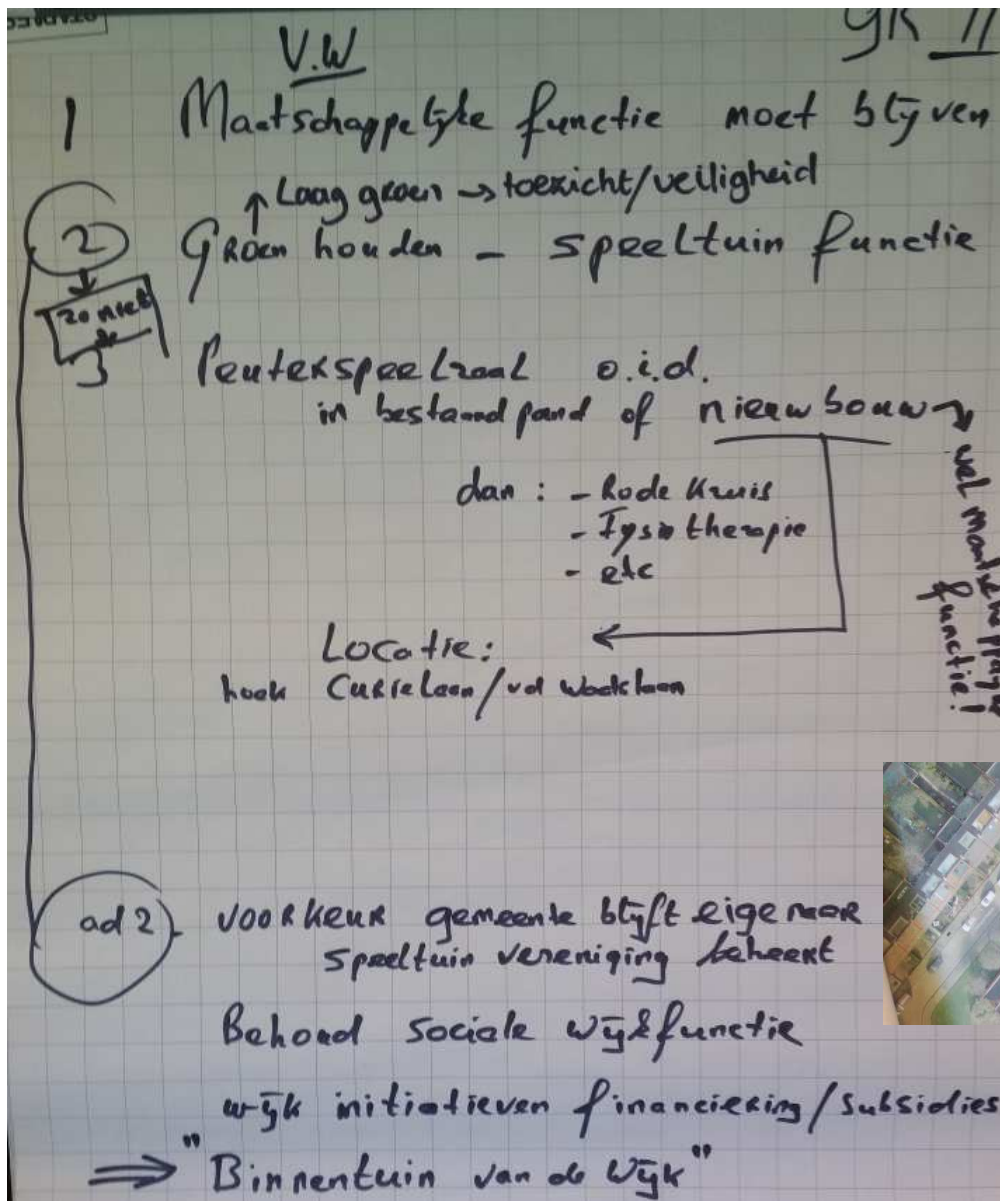 V.W
gR 11
1 Maatschappelijke functie moet blijven
↑ Laag groen → toezicht/veiligheid
2 Groen houden - speeltuin functie
zo niet
3 Peuterspeelzaal o.i.d.
in bestaand pand of nieuwbouw
wel maatschappelijke functie!
dan: - Rode Kruis
- Fysiotherapie
- etc
Locatie:
hoek Curielaan/vd
ad 2 voorkeur gemeente blijft eigenaar
speeltuin vereniging beheert
Behoud sociale wijkfunctie
wijk initiatieven financiering/subsidies
⇒ "Binnentuin van de Wijk"